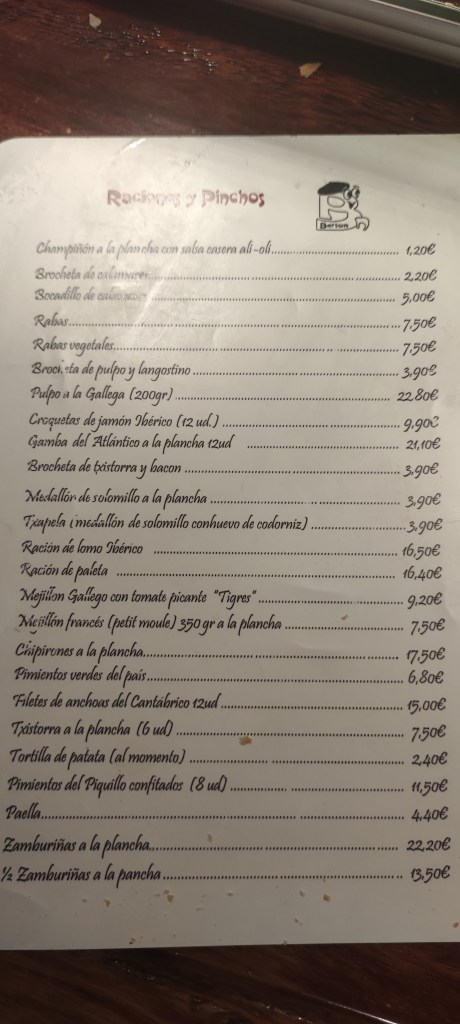 Raciones y Pinchos
Berton
Champiñón a la plancha con salsa casera ali-oli 1,20€
Brocheta de calamares 2,20€
Bocadillo de calamares 5,00€
Rabas 7,50€
Rabas vegetales 7,50€
Brocheta de pulpo y langostino 3,90€
Pulpo a la Gallega (200gr) 22,80€
Croquetas de jamón Ibérico (12 ud.) 9,90€
Gamba del Atlántico a la plancha 12ud 21,10€
Brocheta de txistorra y bacon 3,90€
Medallón de solomillo a la plancha 3,90€
Txapela (medallón de solomillo conhuevo de codorniz) 3,90€
Ración de lomo Ibérico 16,50€
Ración de paleta 16,40€
Mejillon Gallego con tomate picante "Tigres" 9,20€
Mejillón francés (petit moule) 350 gr a la plancha 7,50€
Chipirones a la plancha 17,50€
Pimientos verdes del país 6,80€
Filetes de anchoas del Cantábrico 12ud 15,00€
Txistorra a la plancha (6 ud) 7,50€
Tortilla de patata (al momento) 2,40€
Pimientos del Piquillo confitados (8 ud) 11,50€
Paella 4,40€
Zamburiñas a la plancha 22,20€
½ Zamburiñas a la pancha 13,50€